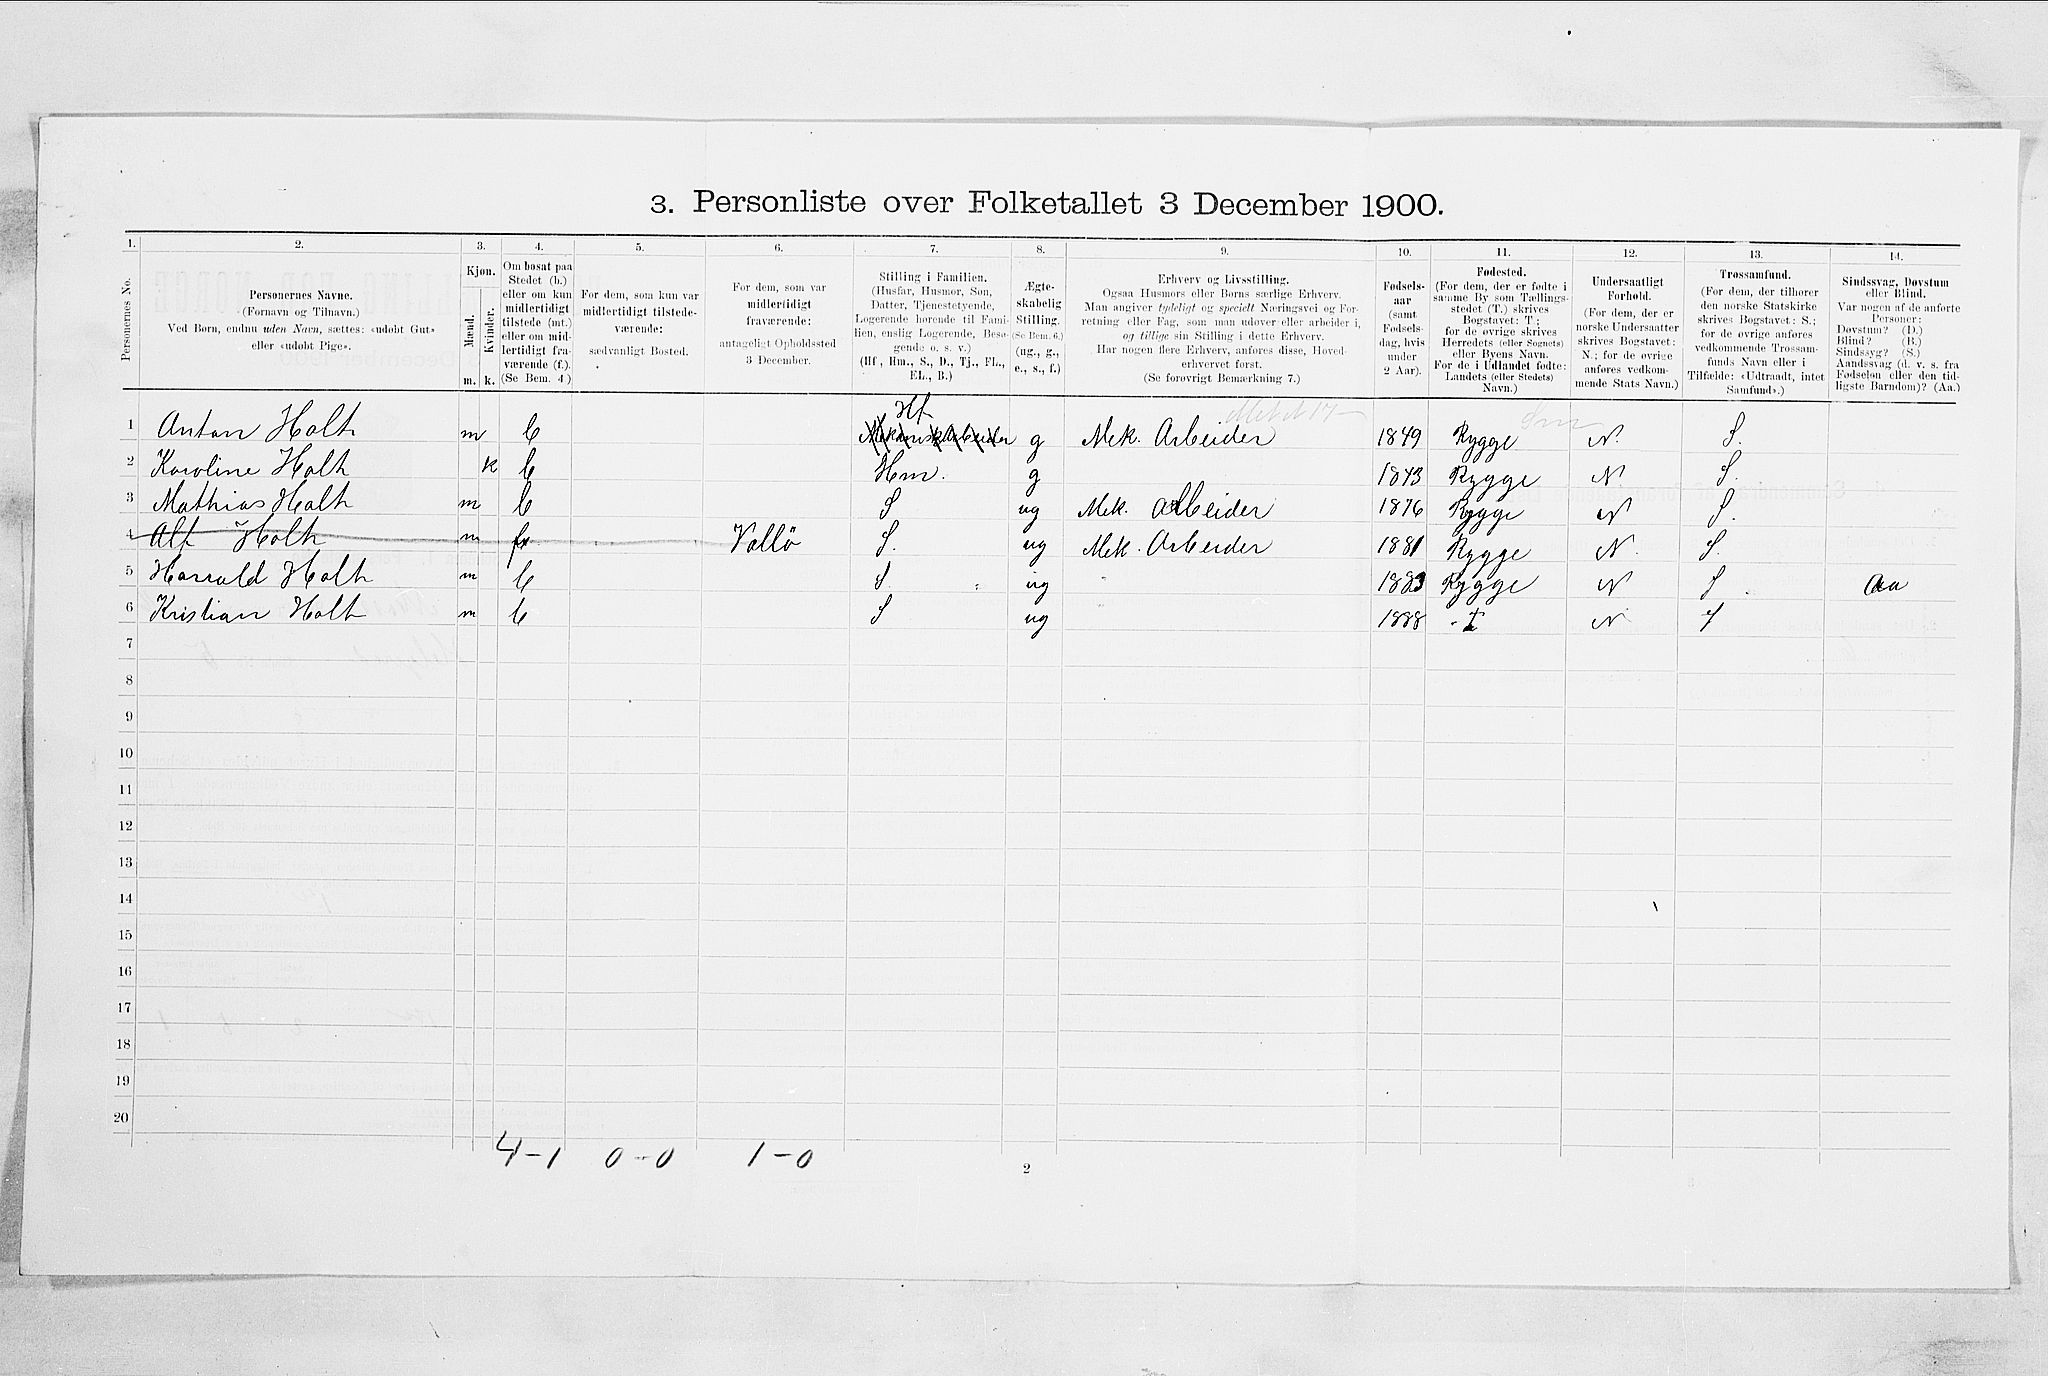 3. Personliste over Folketallet 3 December 1900.
1. 2. 3. 4. 5. 6. 7. 8. 9. 10. 11. 12. 13. 14.
Personernes No.
Personernes Navne.
(Fornavn og Tilnavn.)
Ved Børn, endnu uden Navn, sættes: «udøbt Gut»
eller «udøbt Pige».
Kjøn.
Mænd.
Kvinder.
m. k.
Om bosat paa
Stedet (b.)
eller om kun
midlertidigt
tilstede (mt.)
eller om mid-
lertidigt fra-
værende (f.).
(Se Bem. 4)
For dem, som kun var
midlertidigt tilstede-
værende:
sædvanligt Bosted.
For dem, som var
midlertidigt
fraværende:
antageligt Opholdssted
3 December.
Stilling i Familien.
(Husfar, Husmor, Søn,
Datter, Tjenestetyende,
Logerende hørende til Fami-
lien, enslig Logerende, Besø-
gende o. s. v.)
(Hf, Hm., S., D., Tj., FL.,
EL., B.)
Ægte-
skabelig
Stilling.
(Se Bem. 6.)
(ug., g.,
e., s., f.)
Erhverv og Livsstilling.
Ogsaa Husmors eller Børns særlige Erhverv.
Man angiver tydeligt og specielt Næringsvei og For-
retning eller Fag, som man udøver eller arbeider i,
og tillige sin Stilling i dette Erhverv.
Har nogen flere Erhverv, anføres disse, Hoved-
erhvervet først.
(Se forøvrigt Bemærkning 7.)
Fødsels-
aar
(samt
Fødsels-
dag, hvis
under
2 Aar).
Fødested.
(For dem, der er fødte i
samme By som Tællings-
stedet (T.) skrives
Bogstavet: T.;
for de øvrige skrives
Herredets (eller Sognets)
eller Byens Navn.
For de i Udlandet fødte:
Landets (eller Stedets)
Navn.)
Undersaatligt
Forhold.
(For dem, der er
norske Undersaatter
skrives Bogstavet:
N.; for de øvrige
anføres vedkom-
mende Stats Navn.)
Trossamfund.
(For dem, der tilhører
den norske Statskirke
skrives Bogstavet: S.;
for de øvrige anføres
vedkommende Trossam-
funds Navn eller i
Tilfælde: «Udtraadt, intet
Samfund».)
Sindssvag, Døvstum
eller Blind.
Var nogen af de anførte
Personer:
Døvstum? (D.)
Blind? (B.)
Sindssyg? (S.)
Aandssvag (d. v. s. fra
Fødselen eller den tid-
ligste Barndom)? (Aa.)
Hf
1 Anton Holt m b Mekanisk Arbeider g Mek. Arbeider 1849 Rygge N. S.
2 Karoline Holt k b Hm. g 1843 Rygge N S.
3 Mathias Holt m b S ug Mek. Arbeider 1876 Rygge N S.
4 Alf Holt m f Vallö S. ug Mek. Arbeider 1881 Rygge N. S.
5 Harrald Holt m b S. ug 1883 Rygge N S Aa
6 Kristian Holt m b S ug 1888 T N S
7
8
9
10
11
12
13
14
15
16
17
18
19
20
4-1 0-0 1-0
2